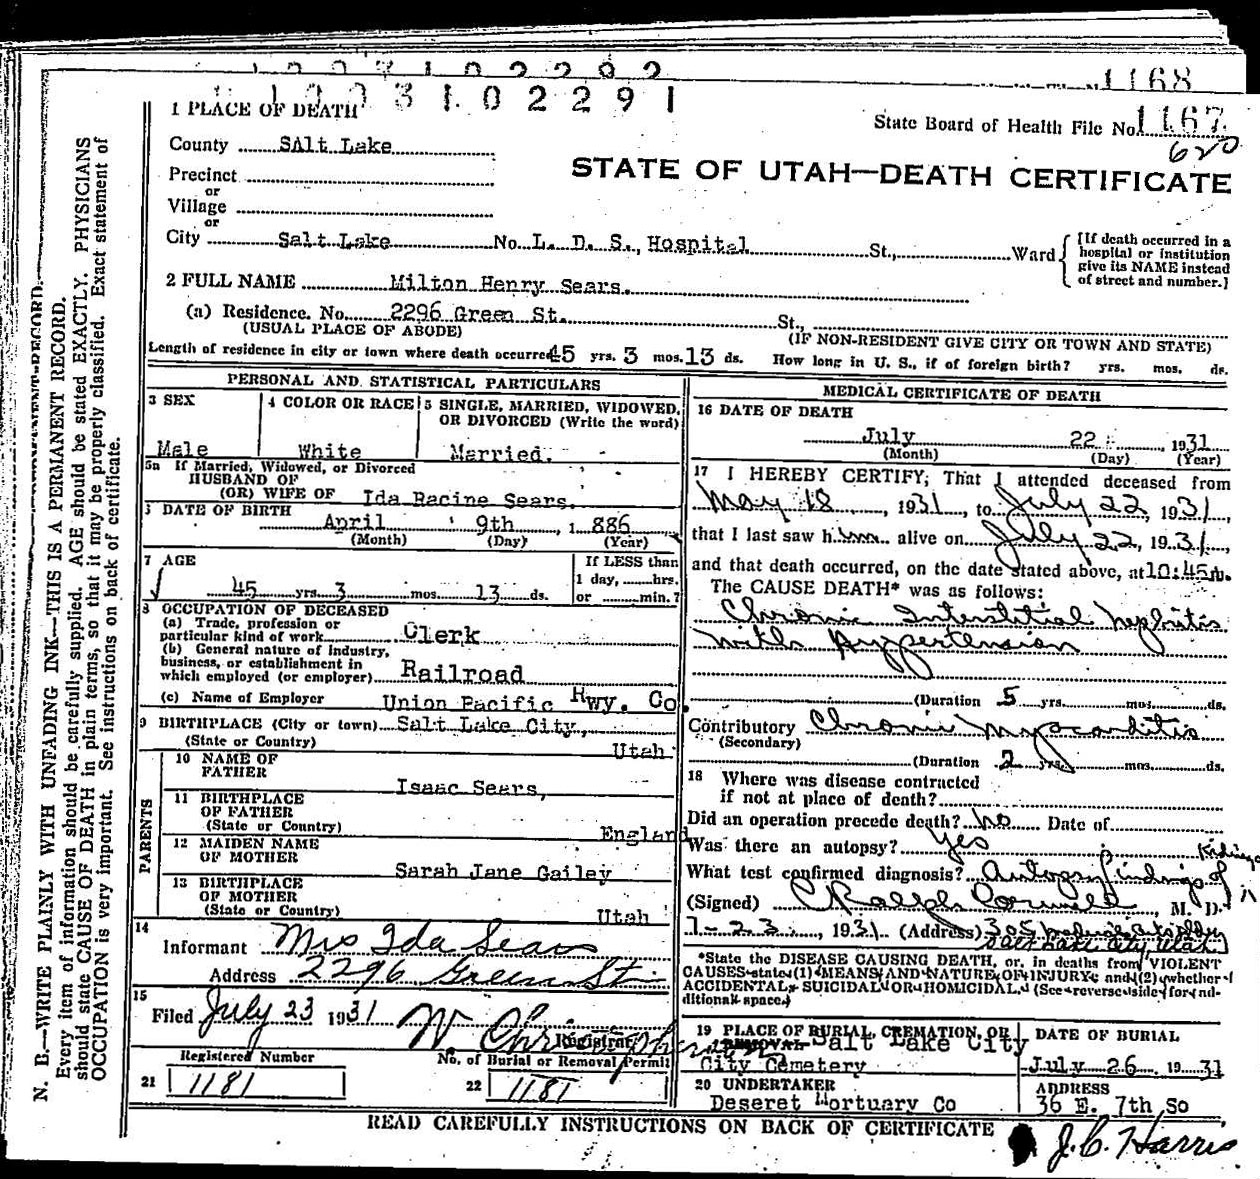 1168
1 PLACE OF DEATH
1 0 0 3 1 0 2 2 9 1
State Board of Health File No. 1167
620
County Salt Lake
STATE OF UTAH—DEATH CERTIFICATE
Precinct
or
Village
or
City Salt Lake No. L. D. S., Hospital St., Ward
[If death occurred in a
hospital or institution
give its NAME instead
of street and number.]
2 FULL NAME Milton Henry Sears.
(a) Residence. No. 2296 Green St. St.,
(USUAL PLACE OF ABODE) (IF NON-RESIDENT GIVE CITY OR TOWN AND STATE)
Length of residence in city or town where death occurred 45 yrs. 3 mos. 13 ds. How long in U. S., if of foreign birth? yrs. mos. ds.
PERSONAL AND STATISTICAL PARTICULARS
3 SEX
Male
4 COLOR OR RACE
White
5 SINGLE, MARRIED, WIDOWED,
OR DIVORCED (Write the word)
Married.
5a If Married, Widowed, or Divorced
HUSBAND OF
(OR) WIFE OF Ida Racine Sears.
6 DATE OF BIRTH
April 9th, 1886
(Month) (Day) (Year)
7 AGE
45 yrs. 3 mos. 13 ds.
If LESS than
1 day, hrs.
or min.?
8 OCCUPATION OF DECEASED
(a) Trade, profession or
particular kind of work Clerk
(b) General nature of industry,
business, or establishment in
which employed (or employer) Railroad
(c) Name of Employer Union Pacific Rwy. Co.
9 BIRTHPLACE (City or town) Salt Lake City,
(State or Country) Utah
PARENTS
10 NAME OF
FATHER Isaac Sears,
11 BIRTHPLACE
OF FATHER
(State or Country) England
12 MAIDEN NAME
OF MOTHER Sarah Jane Gailey
13 BIRTHPLACE
OF MOTHER
(State or Country) Utah
14
Informant Mrs Ida Sears
Address 2296 Green St.
15
Filed July 23 1931 W. Christopherson
Registrar
Registered Number
No. of Burial or Removal Permit
21 1181
22 1181
MEDICAL CERTIFICATE OF DEATH
16 DATE OF DEATH
July 22 1931
(Month) (Day) (Year)
17 I HEREBY CERTIFY, That I attended deceased from
May 18, 1931, to July 22, 1931,
that I last saw him alive on July 22, 1931,
and that death occurred, on the date stated above, at 10:45 m.
The CAUSE DEATH* was as follows:
Chronic Interstitial Nephritis
with Hypertension
(Duration 5 yrs. mos. ds.
Contributory Chronic Myocarditis
(Secondary)
(Duration 2 yrs. mos. ds.
18 Where was disease contracted
if not at place of death?
Did an operation precede death? No Date of
Was there an autopsy? Yes
What test confirmed diagnosis? Autopsy findings of Kidneys
(Signed) C Ralph Cornwall, M. D.
7-23, 1931. (Address) 305
Salt Lake City Utah
*State the DISEASE CAUSING DEATH, or, in deaths from VIOLENT
CAUSES state (1) MEANS AND NATURE OF INJURY; and (2) whether
ACCIDENTAL, SUICIDAL OR HOMICIDAL. (See reverse side for ad-
ditional space.)
19 PLACE OF BURIAL, CREMATION, OR
REMOVAL Salt Lake City
City Cemetery
DATE OF BURIAL
July 26 1931
20 UNDERTAKER
Deseret Mortuary Co
ADDRESS
36 E. 7th So
READ CAREFULLY INSTRUCTIONS ON BACK OF CERTIFICATE
J. C. Harris
N. B.—WRITE PLAINLY WITH UNFADING INK—THIS IS A PERMANENT RECORD.
Every item of information should be carefully supplied. AGE should be stated EXACTLY. PHYSICIANS
should state CAUSE OF DEATH in plain terms, so that it may be properly classified. Exact statement of
OCCUPATION is very important. See instructions on back of certificate.